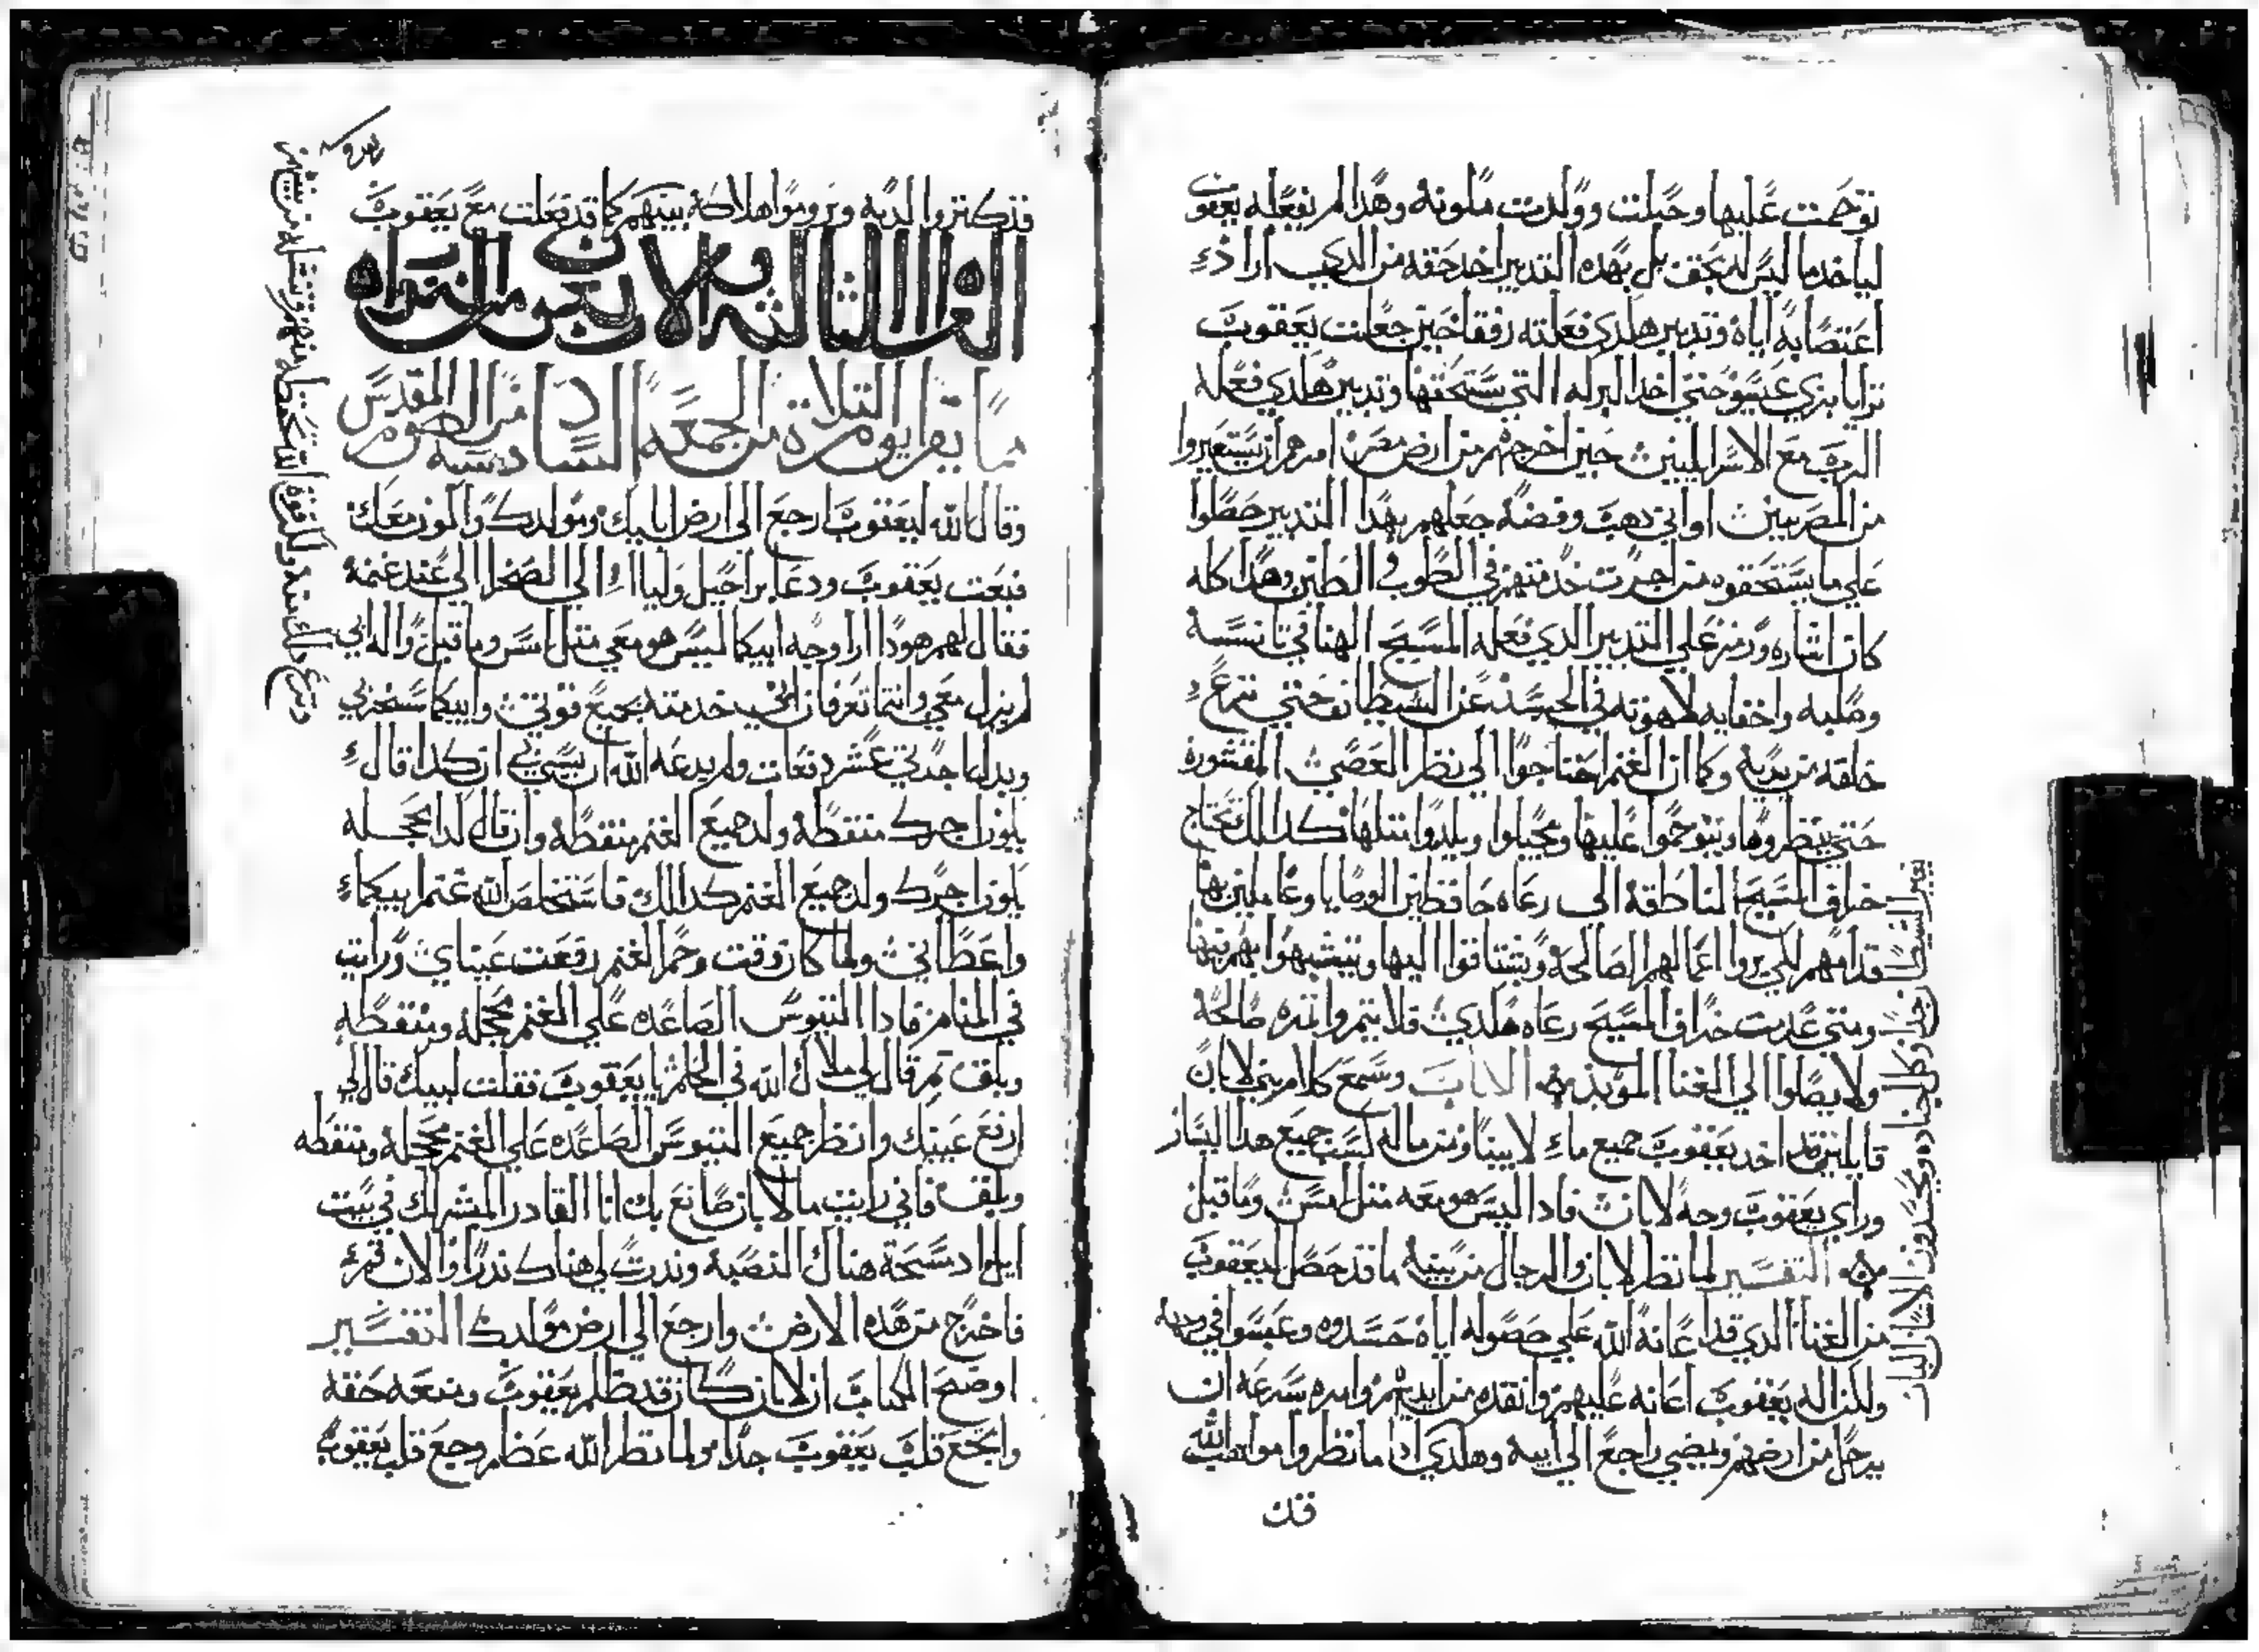 توحمت عليها وحبلت وولدت ملونه وهدا لم يفعله يعقوب
لياخد ما ليس له بحق بل بهده التدبير اخد حقه من الدي اراد
اغتصابه اياه وتدبير هلدي فعلته رفقا حين جعلت يعقوب
تزايا بزي عيسو حتي اخد البركه التي يستحقها وتدبير هلدي فعله
الرب مع الاسراييليين حين اخرجهم من ارض مصر امرهم ان يستعيروا
من المصريين اواني دهب وفضه جعلهم بهدا التدبير حصلوا
علي ما يستحقوه من اجرت خدمتهم في الطوب والطين وهدا كله
كان اشاره ورمز علي التدبير الدي فعله المسيح الهنا في تانسه
وصلبه واخفايه لاهوته في الجسد عن الشيطان حتي نزع
خلقه من يديه وكما ان الغنم احتاجوا الي نظر العصي المقشوره
حتي ينظروها ويتوحموا عليها ويحبلوا ويلدوا مثلها كدالك تحتاج
خراف المسيح الناطقه الي رعاه حافظين الوصايا وعاملين بها
قدامهم لكي يروا اعمالهم الصالحه ويشتاقوا اليها ويتشبهوا بهم فيها
ومتي عدمت خراف المسيح رعاه هلدي فلا يتمروا ثمره صالحه
ولا يصلوا الي الغنا المؤبد الاباب وسمع كلام بني لابان
قايلين قد اخد يعقوب جميع ما لابينا ومن ماله كسب جميع هدا اليسار
وراي يعقوب وجه لابان فادا ليس هو معه مثل امس وما قبل
التفسير لما نظر لابان والرجال من بنيه ما قد حصل ليعقوب
من الغنا الدي قد اعانه الله علي حصوله اياه حسدوه وعبسوا في وجهه
ولكن اله يعقوب اعانه عليهم وانقده من ايديهم وامره بسرعه ان
يرحل من ارضهم ويمضي راجع الي ابيه وهلدي ادا ما نظروا مواهب الله
فك
فدكتروا لديه ويروموا هلاكه بينهم كما قد فعلت مع يعقوب
القراه الثالثه والاربعين من التوراه
مما يقرا يوم التلاته من الجمعه السادسه من الصوم المقدس
وقال الله ليعقوب ارجع الي ارض ابايك ومولدك واكون معك
فبعت يعقوب ودعا براحيل وليا الي الصحرا الي عند غنمه
فقال لهم هودا ارا وجه ابيكما ليس هو معي مثل امس وما قبل واله ابي
لم يزل معي وانتما تعرفان اني خدمته بجميع قوتي وابيكما سخر بي
وبدل اجدتي عشر دفعات ولم يدعه الله ان يسي بي ان كدا قال
يكون اجرك منقطه ولد جميع الغنم منقطه وان قال كدا محجله
يكون اجرك ولد جميع الغنم كدالك فاستخلص الله غنم ابيكما
واعطاني ولما كان وقت وحم الغنم رفعت عيناي ورايت
في المنام فادا التيوس الصاعده علي الغنم محجله ومنقطه
وبلق تم قال لي ملاك الله في الحلم يا يعقوب فقلت لبيك قال لي
ارفع عينيك وانظر جميع التيوس الصاعده علي الغنم محجله ومنقطه
وبلق فاني رايت ما لابان صانع بك انا القادر المشر لك في بيت
ايل واد مسحة هناك النصبه وندرت لي هناك ندرا والان قم
فاخرج من هده الارض وارجع الي ارض مولدك التفسير
اوضح الكتاب ان لابان كان قد ظلم يعقوب ومنعه حقه
واوجع قلب يعقوب جدا ولما نظر الله عظم وجع قلب يعقوب